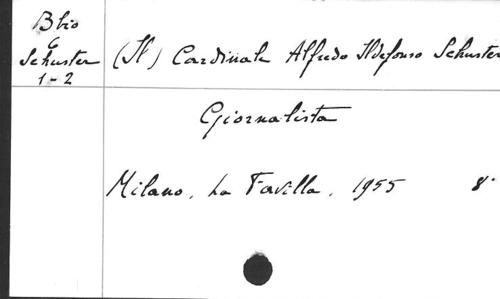 B bio
G
Schuster
1-2
(Il) Cardinale Alfredo Ildefonso Schuster
Giornalista
Milano, La Favilla, 1955 8°